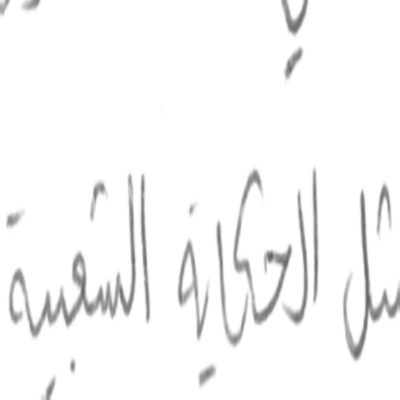 مثل الحكاية الشعبية